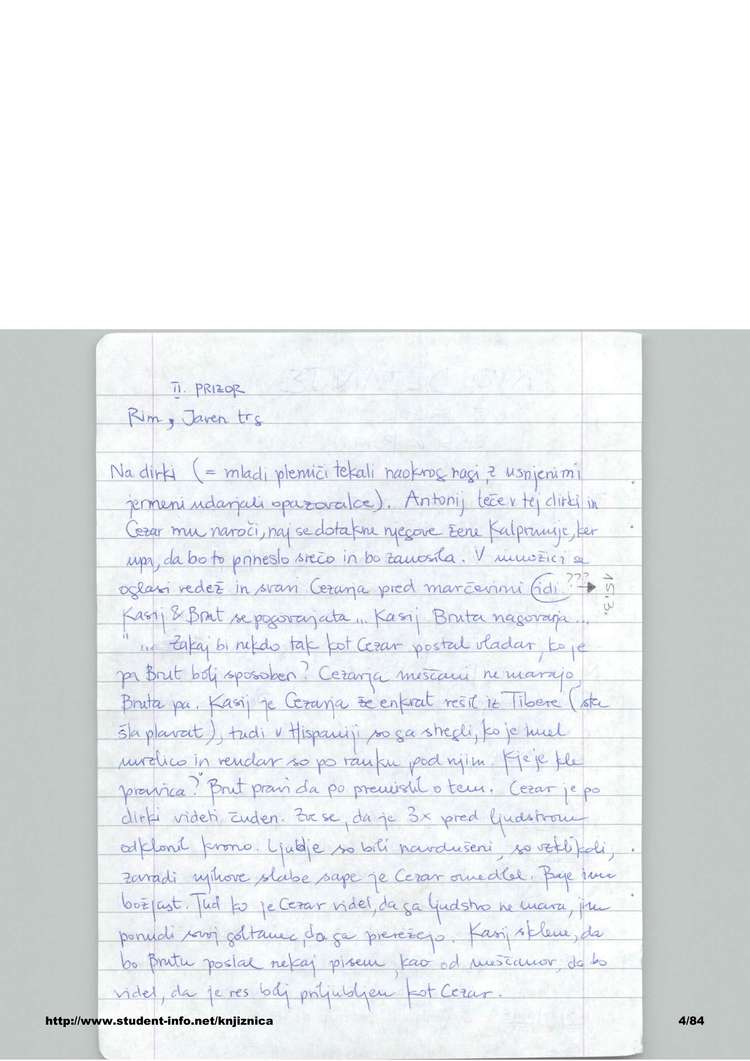 II. PRIZOR
Rim, Javen trg
Na dirki (= mladi plemiči tekali naokrog nagi, z usnjenimi
jermeni udarjali opazovalce). Antonij teče v tej dirki in
Cezar mu naroči, naj se dotakne njegove žene Kalpurnije, ker
upa, da bo to prineslo srečo in bo zanosila. V množici se
oglasi vedež in svari Cezarja pred marčevimi (idi ??? → 15.3.
Kasij & Brut se pogovarjata... Kasij Bruta nagovarja...
"... Zakaj bi nekdo tak kot Cezar postal vladar, ko je
pa Brut bolj sposoben? Cezarja meščani ne marajo,
Bruta pa. Kasij je Cezarja že enkrat rešil iz Tibere (sta
šla plavat), tudi v Hispaniji so ga stregli, ko je imel
mrzlico in vendar so po ranku pod njim. Kje je kle
pravica?" Brut pravi da bo premislil o tem. Cezar je po
dirki videti čuden. Zve se, da je 3x pred ljudstvom
odklonil krono. Ljudje so bili navdušeni, so vzklikali,
zaradi njihove slabe sape je Cezar omedlel. Baje ima
božjast. Tud ko je Cezar videl, da ga ljudstvo ne mara, jim
ponudi svoj goltanec, da ga prerežejo. Kasij sklene, da
bo Brutu poslal nekaj pisem, kao od meščanov, da bo
videl, da je res bolj priljubljen kot Cezar.
http://www.student-info.net/knjiznica
4/84